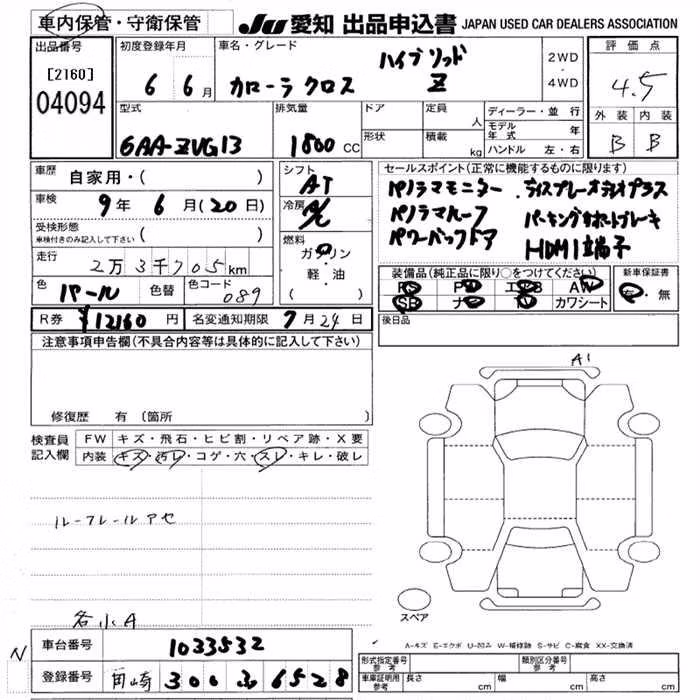 車内保管・守衛保管
JU 愛知 出品申込書 JAPAN USED CAR DEALERS ASSOCIATION
出品番号
[2160]
04094
初度登録年月
6 6月
車名・グレード
カローラクロス ハイブリッド Z
2WD・4WD
評価点
4.5
外装 内装
B B
型式
6AA-ZVG13
排気量
1800 CC
ドア
形状
定員 人
積載 kg
ディーラー・並行
モデル年式 年
ハンドル 左・右
車歴
自家用・( )
車検
9年 6月(20日)
受検形態
車検付きのみ記入して下さい ( )
走行
2万3千705km
色
パール
色替
色コード
089
シフト
AT
冷房
A/C
燃料
ガソリン
軽・油
( )
セールスポイント(正常に機能するものに限ります)
パノラマモニター ディスプレーオーディオプラス
パノラマルーフ パーキングサポートブレーキ
パワーバックドア HDMI端子
装備品(純正品に限り○をつけてください)
PS PW エアB AW
SB ナビ TV カワシート
新車保証書
有・無
R券 ¥12160円 名変通知期限 7月24日
後日品
注意事項申告欄(不具合内容等は具体的に記入して下さい)
修復歴 有 〔箇所
検査員記入欄
FW キズ・飛石・ヒビ割・リペア跡・X要
内装 キズ・汚レ・コゲ・穴・スレ・キレ・破レ
ルーフレールアセ
各小A
A1
スペア
A-キズ E-エクボ U-凹み W-補修跡 S-サビ C-腐食 XX-交換済
N
車台番号
1033532
登録番号
岡崎 300 る 6528
形式指定番号 参考
類別区分番号 参考
車庫証明用 参考
長さ cm 幅 cm 高さ cm